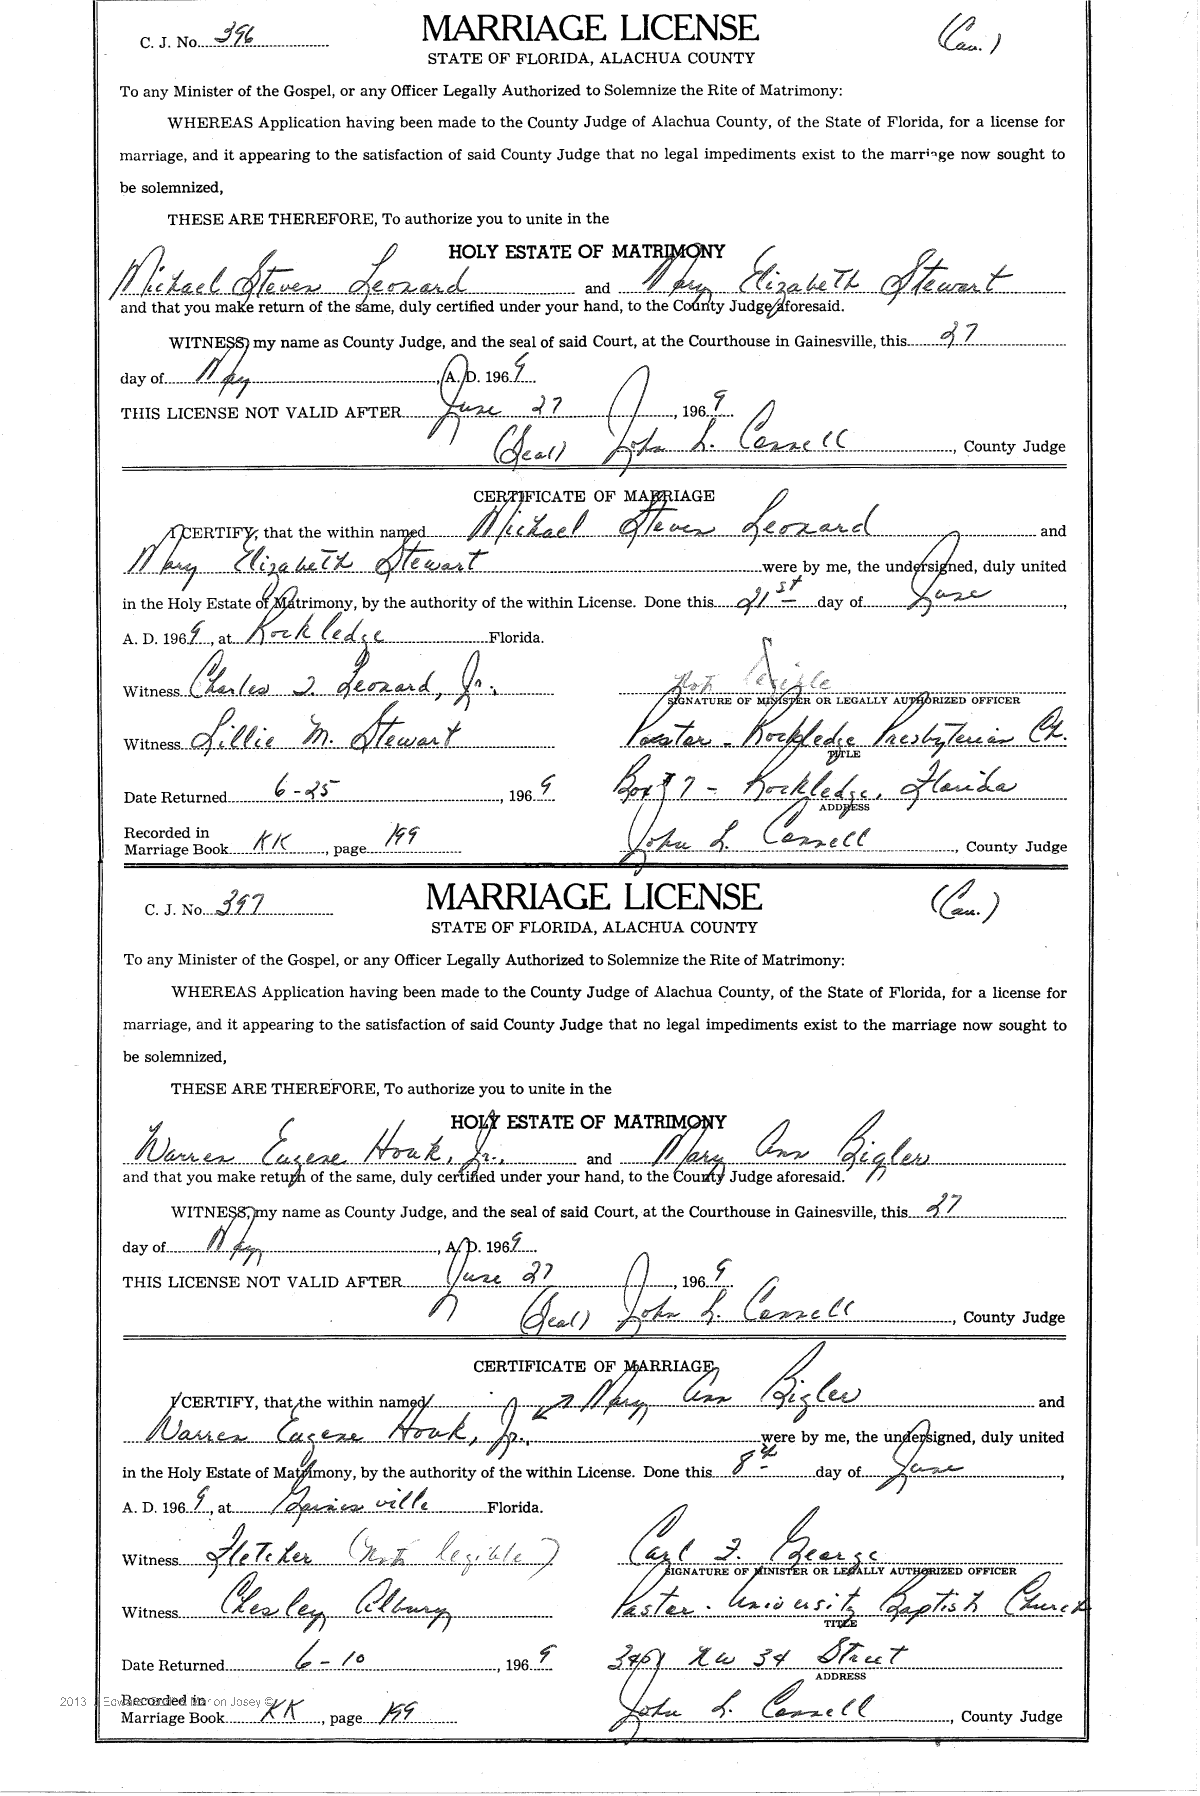 C. J. No. 396
MARRIAGE LICENSE
(Cau.)
STATE OF FLORIDA, ALACHUA COUNTY
To any Minister of the Gospel, or any Officer Legally Authorized to Solemnize the Rite of Matrimony:
WHEREAS Application having been made to the County Judge of Alachua County, of the State of Florida, for a license for
marriage, and it appearing to the satisfaction of said County Judge that no legal impediments exist to the marriage now sought to
be solemnized,
THESE ARE THEREFORE, To authorize you to unite in the
HOLY ESTATE OF MATRIMONY
Michael Steven Leonard and Mary Elizabeth Stewart
and that you make return of the same, duly certified under your hand, to the County Judge aforesaid.
WITNESS, my name as County Judge, and the seal of said Court, at the Courthouse in Gainesville, this 27
day of May, A. D. 1969
THIS LICENSE NOT VALID AFTER June 27, 1969
(Seal) John L. Connell, County Judge
CERTIFICATE OF MARRIAGE
I CERTIFY, that the within named Michael Steven Leonard and
Mary Elizabeth Stewart were by me, the undersigned, duly united
in the Holy Estate of Matrimony, by the authority of the within License. Done this 21st day of June,
A. D. 1969, at Rockledge Florida.
Witness Charles T. Leonard, Jr., Not Legible
SIGNATURE OF MINISTER OR LEGALLY AUTHORIZED OFFICER
Witness Lillie M. Stewart Pastor - Rockledge Presbyterian Ch.
TITLE
Date Returned 6-25, 1969 Box 7 - Rockledge, Florida
ADDRESS
Recorded in
Marriage Book KK, page 199 John L. Connell, County Judge
C. J. No. 397
MARRIAGE LICENSE
(Cau.)
STATE OF FLORIDA, ALACHUA COUNTY
To any Minister of the Gospel, or any Officer Legally Authorized to Solemnize the Rite of Matrimony:
WHEREAS Application having been made to the County Judge of Alachua County, of the State of Florida, for a license for
marriage, and it appearing to the satisfaction of said County Judge that no legal impediments exist to the marriage now sought to
be solemnized,
THESE ARE THEREFORE, To authorize you to unite in the
HOLY ESTATE OF MATRIMONY
Warren Eugene Houk, Jr., and Mary Ann Bigler
and that you make return of the same, duly certified under your hand, to the County Judge aforesaid.
WITNESS, my name as County Judge, and the seal of said Court, at the Courthouse in Gainesville, this 27
day of May, A. D. 1969
THIS LICENSE NOT VALID AFTER June 27, 1969
(Seal) John L. Connell, County Judge
CERTIFICATE OF MARRIAGE
I CERTIFY, that the within named Mary Ann Bigler and
Warren Eugene Houk, Jr., were by me, the undersigned, duly united
in the Holy Estate of Matrimony, by the authority of the within License. Done this 8th day of June,
A. D. 1969, at Gainesville Florida.
Witness Fletcher (Not legible) Carl F. George
SIGNATURE OF MINISTER OR LEGALLY AUTHORIZED OFFICER
Witness Chesley Albury Pastor - University Baptist Church
TITLE
Date Returned 6-10, 1969 NW 34 Street
ADDRESS
Recorded in
Marriage Book KK, page 199 John L. Connell, County Judge
2013